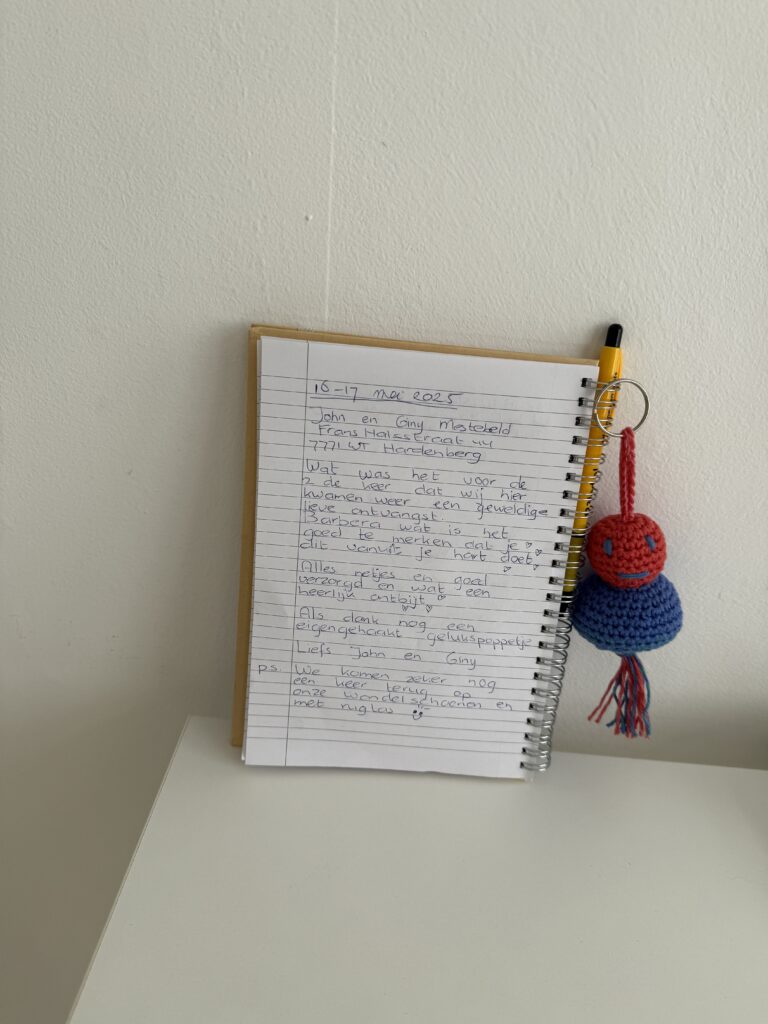 16-17 mei 2025
John en Giny Mestebeld
Frans Halsstraat 44
7771 WT Hardenberg
Wat was het voor de
2 de keer dat wij hier
kwamen weer een geweldige
lieve ontvangst.
Barbera wat is het
goed te merken dat je
dit vanuit je hart doet
Alles netjes en goed
verzorgd en wat een
heerlijk ontbijt
Als dank nog een
eigengehaakt gelukspoppetje
Liefs John en Giny
ps. We komen zeker nog
een keer terug op
onze wandelschoenen en
met rugtas